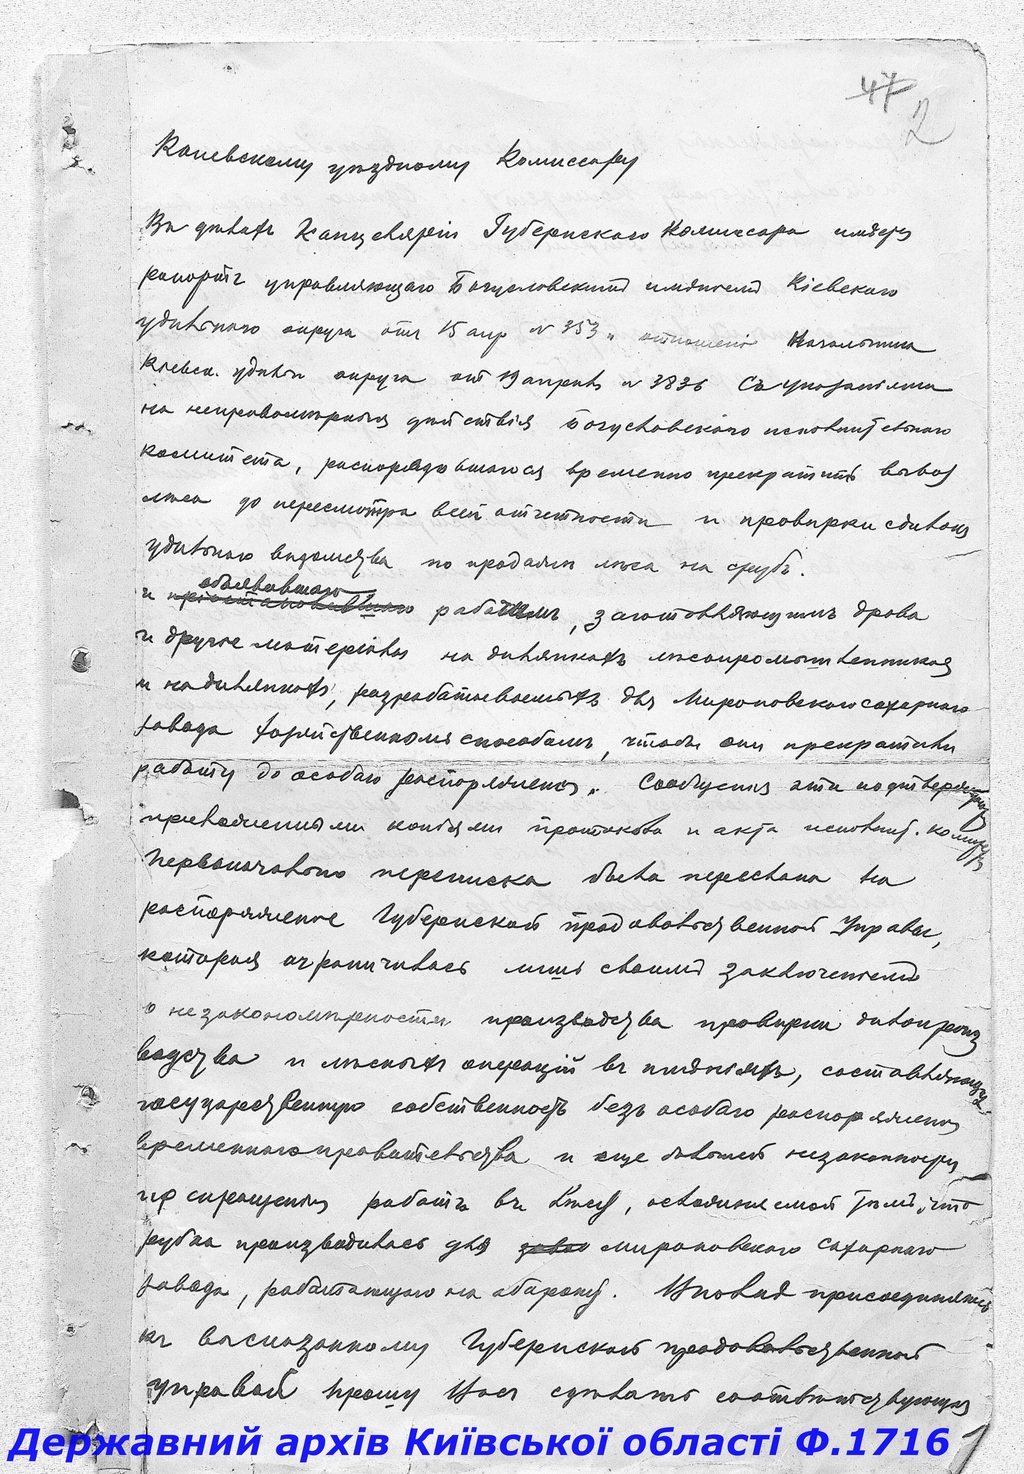 47
2
Каневскому уездному Комиссару
Въ дѣлахъ Канцелярiи Губернскаго Комиссара имѣется
рапортъ управляющаго Богуславскимъ имѣнiемъ Кiевскаго
удѣльнаго округа отъ 15 апр N 353 и отношенiе Начальника
Кiевск. удѣльн округа отъ 19 апрѣля N 3836 съ указанiями
на неправомѣрныя дѣйствiя Богуславскаго исполнительнаго
комитета, распорядившагося временно прекратить вывоз
лѣса до пересмотра всей отчетности и провѣрки сдѣлокъ
удѣльнаго вѣдомства по продажѣ лѣса на срубъ.
объявившаго
и прiостановившаго рабочимъ, заготовляющимъ дрова
и другiе матерiалы на дѣлянкахъ лѣсопромышленниковъ
и на дѣлянкахъ, разрабатываемыхъ для Мироновскаго сахарнаго
завода хозяйственнымъ способомъ, чтобы они прекратили
работу до особаго распоряженiя. Сообщенiя эти подтверждены
приложенными копiями протокола и акта исполнит. комитета
Первоначально переписка была переслана на
распоряженiе Губернской продовольственной Управы,
которая ограничилась лишь своимъ заключенiемъ
о незакономѣрности производства провѣрки дѣлопроиз
водства и лѣсныхъ операцiй въ имѣнiяхъ, составляющихъ
государственную собственность безъ особаго распоряженiя
временнаго правительства и еще большей незаконности
прекращенiя работъ въ лѣсу, осложняемой тѣмъ, что
рубка производилась для Мироновскаго сахарнаго
завода, работающаго на оборону. Вполнѣ присоединяясь
къ высказанному Губернской продовольственной
управой прошу Васъ сдѣлать соотвѣтствующiя
Державний архів Київської області Ф.1716